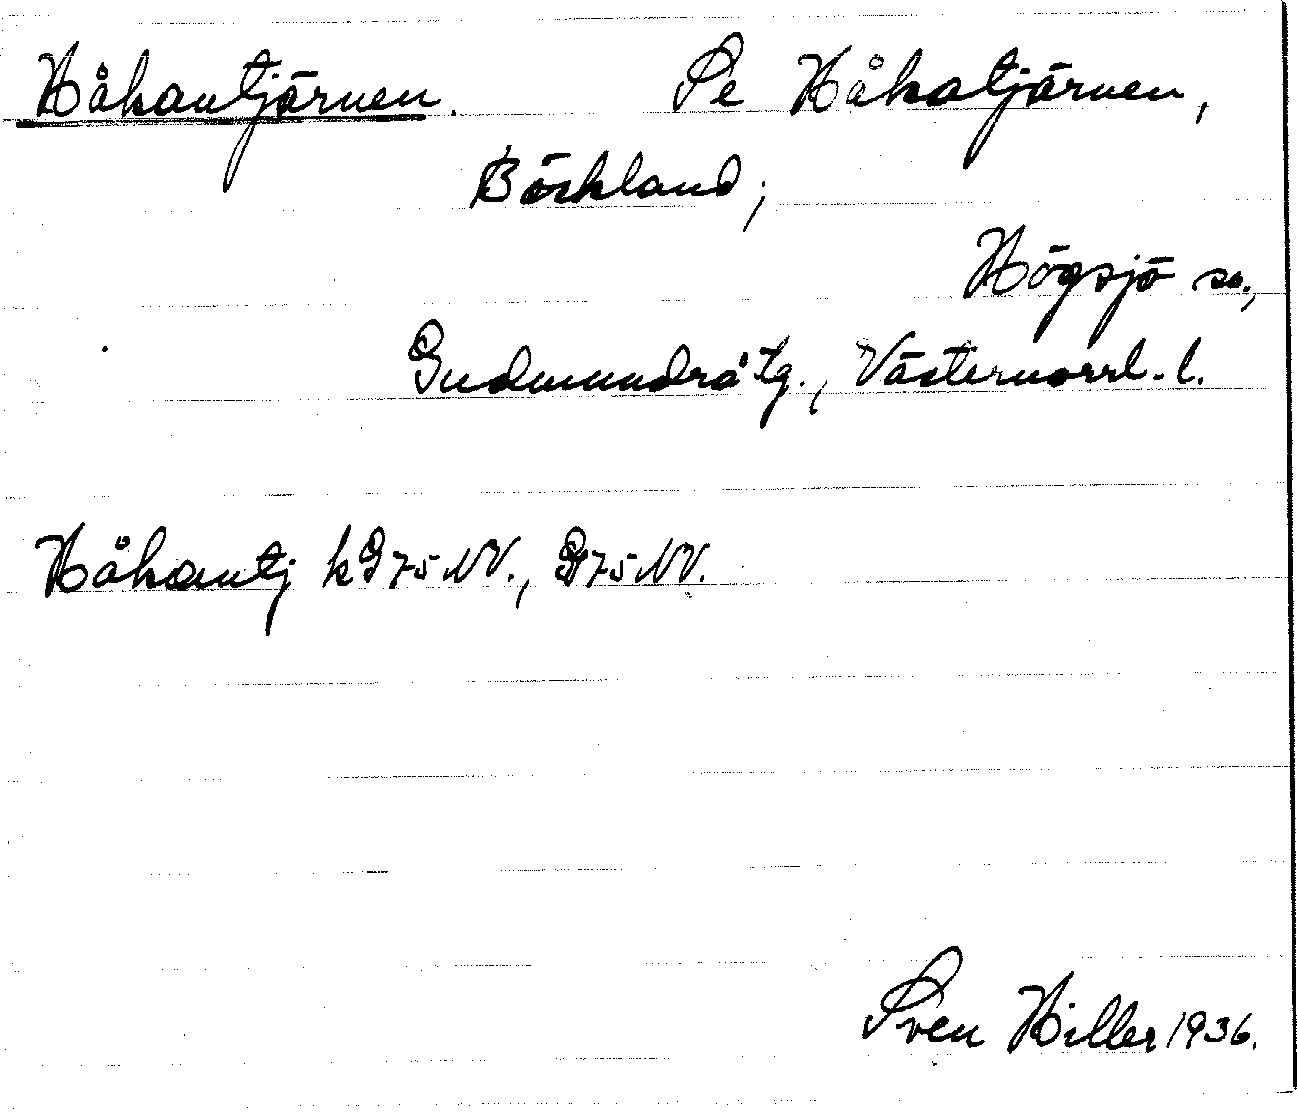 Håkantjärnen. Se Håkatjärnen,
Börkland,
Högsjö sn.,
Gudmundrå tg., Västernorrl. l.
Håkantj kG75NV., G75NV.
Sven Hiller 1936.